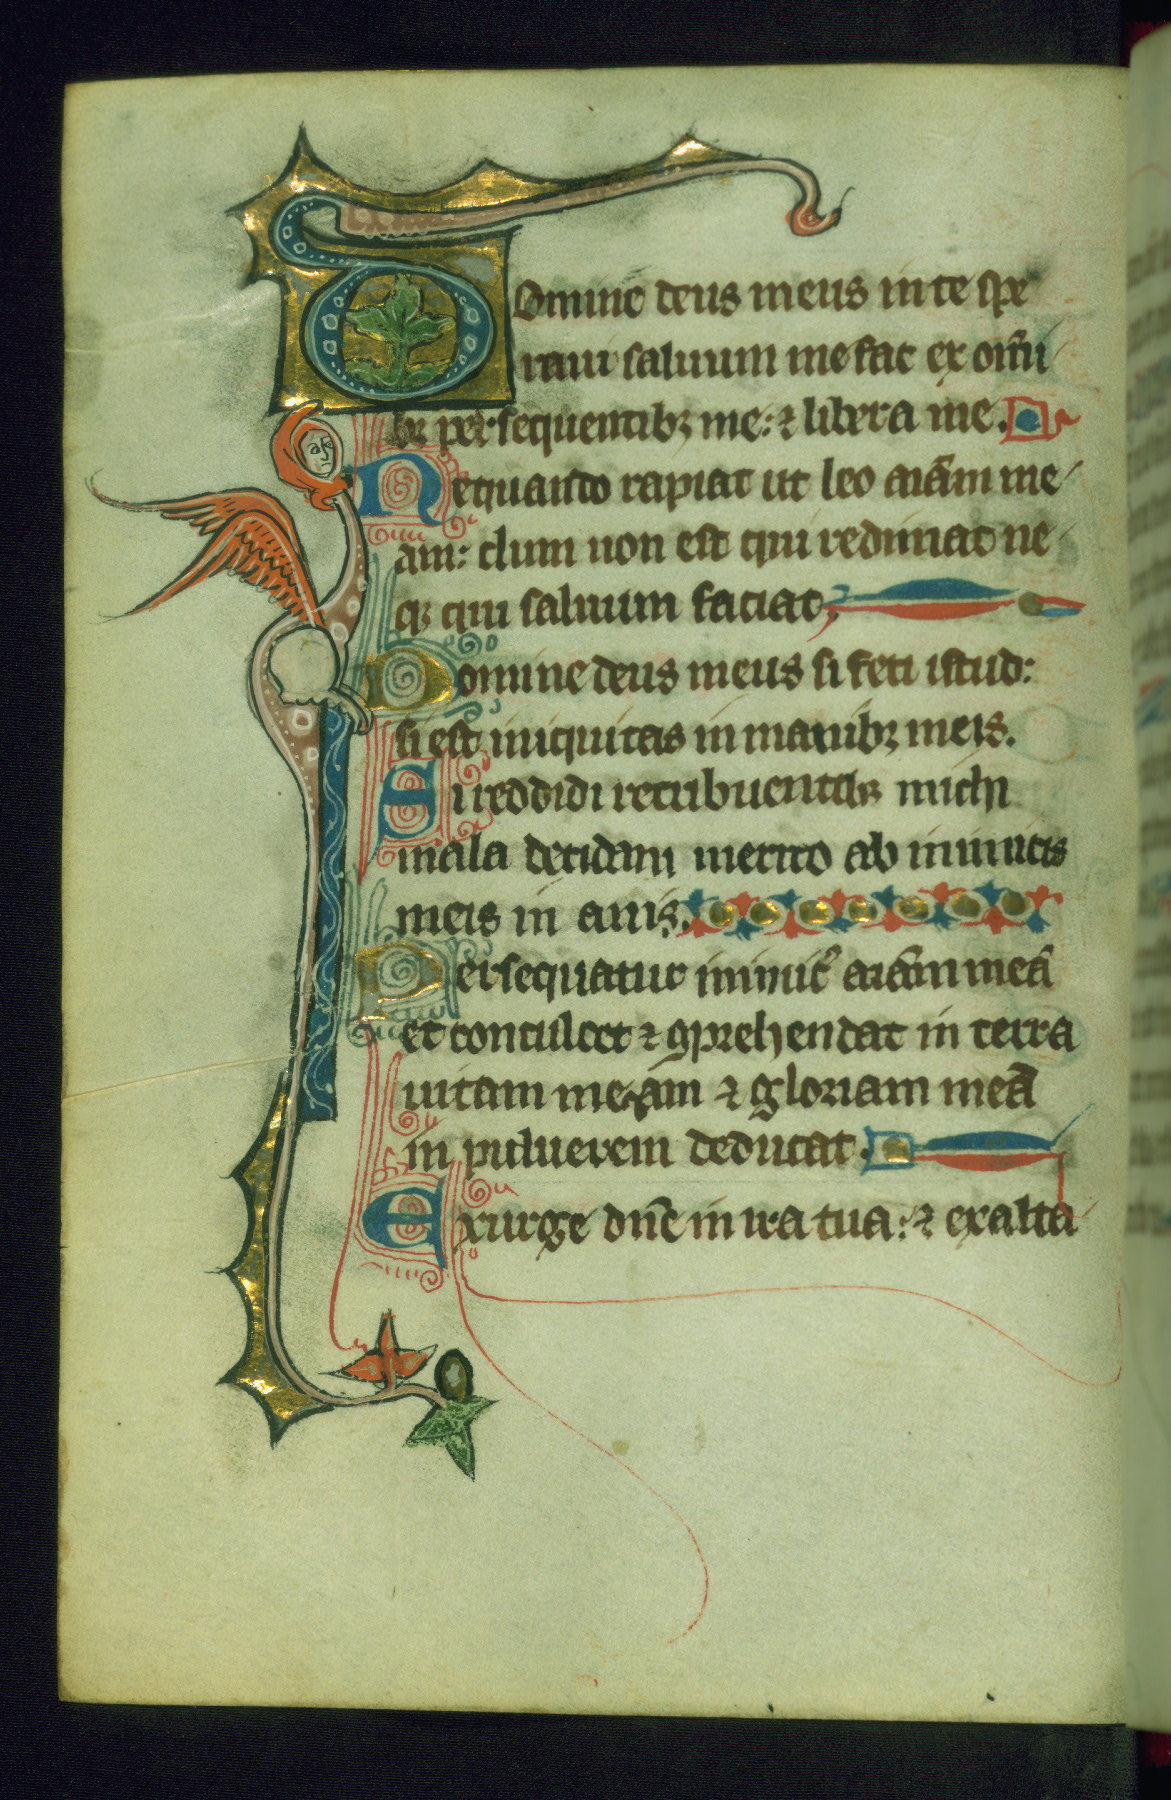 Domine deus meus in te spe
raui saluum me fac ex om̄i
bꝫ persequentibꝫ me: ⁊ libera me.
Nequando rapiat ut leo aīam me
am: dum non est qui redimat ne
qꝫ qui saluum faciat;
Domine deus meus si feci istud:
si est iniquitas in manibꝫ meis.
Si reddidi retribuentibꝫ michi
mala decidam merito ab inimicis
meis inanis.
Persequatur inimicꝰ aīam meā
et conculcet ⁊ ꝯprehendat in terra
uitam meam ⁊ gloriam meā
in puluerem deducat.
Exurge dn̄e in ira tua: ⁊ exalta